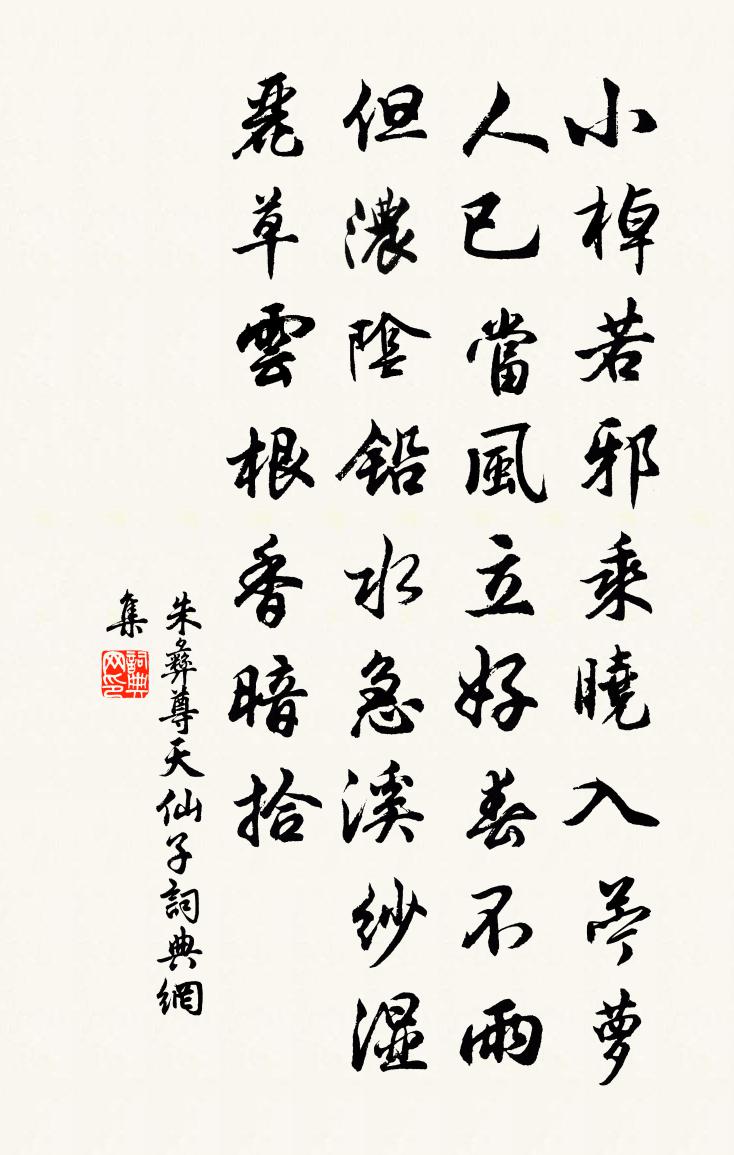 小棹若邪乘曉入苎萝
人已當風立好春不雨
但濃陰鉛水急溪紗湿
麗草雲根香暗拾
朱彝尊天仙子詞典網
集
詞典
网印